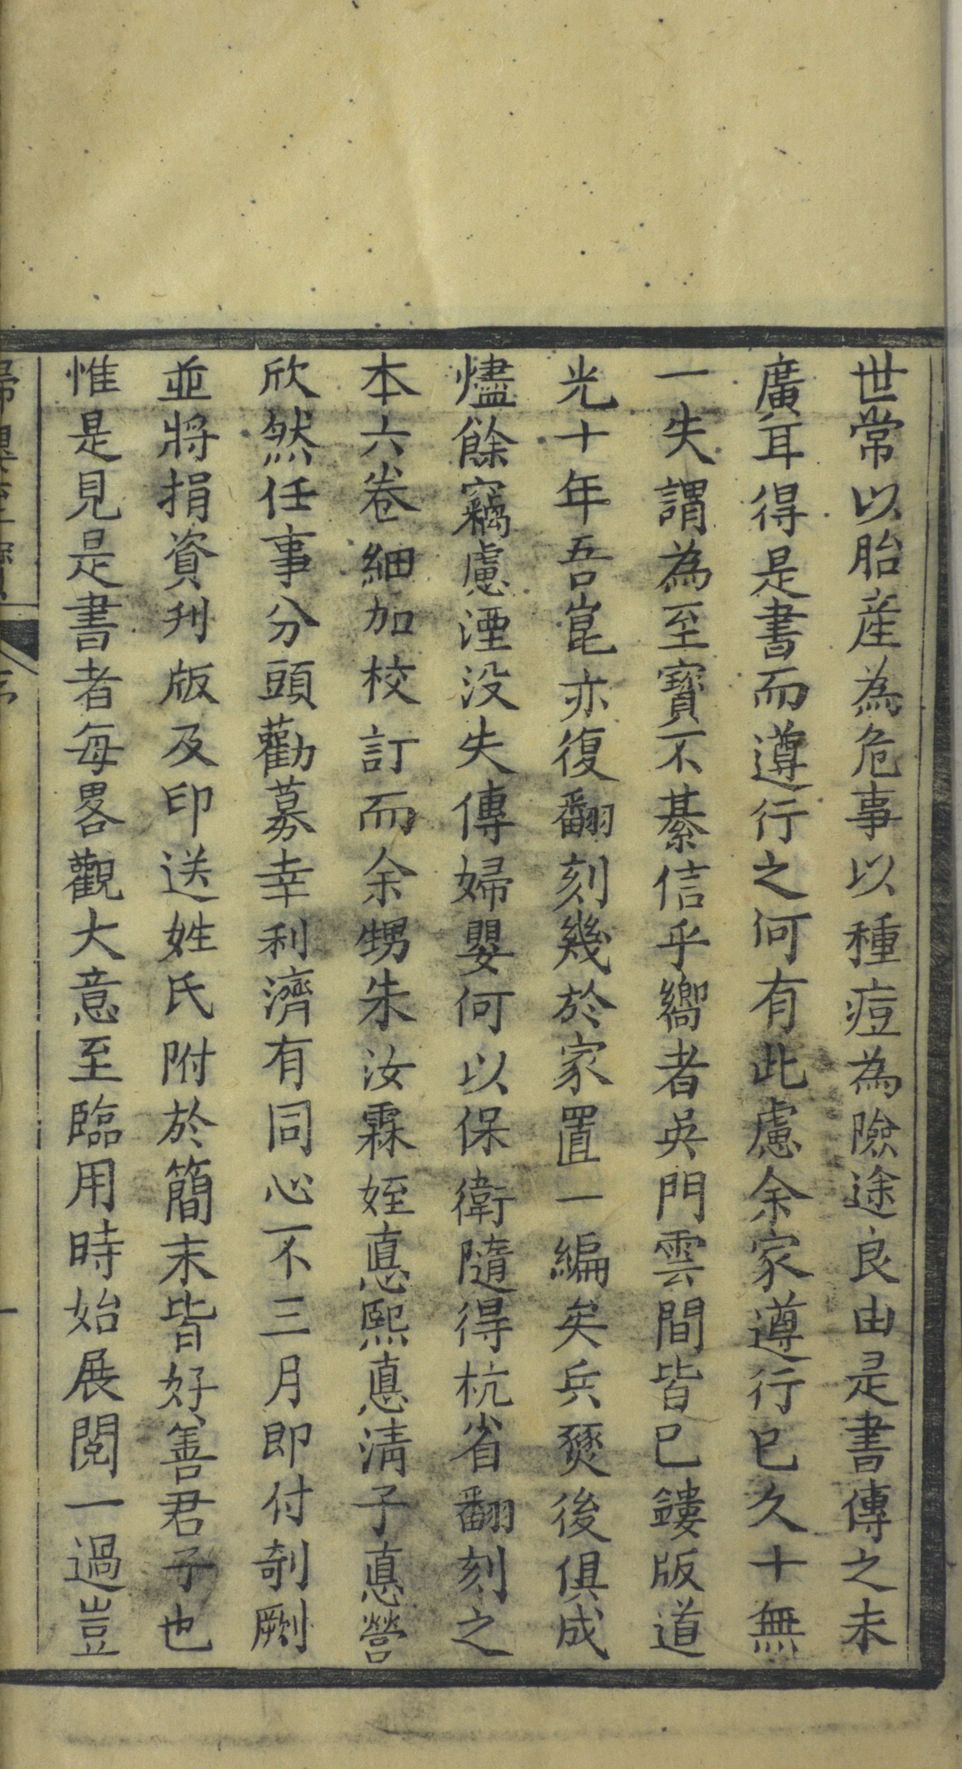 世常以胎產為危事以種痘為險途良由是書傳之未
廣耳得是書而遵行之何有此慮余家遵行已久十無
一失謂為至寶不綦信乎嚮者吳門雲間皆已鏤版道
光十年吾崑亦復翻刻幾於家置一編矣兵燹後俱成
燼餘竊慮湮没失傳婦嬰何以保衛隨得杭省翻刻之
本六卷細加校訂而余甥朱汝霖姪惪熙惪淸子惪營
欣然任事分頭勸募幸利濟有同心不三月即付剞劂
並將捐資刋版及印送姓氏附於簡末皆好善君子也
惟是見是書者每畧觀大意至臨用時始展閱一過豈